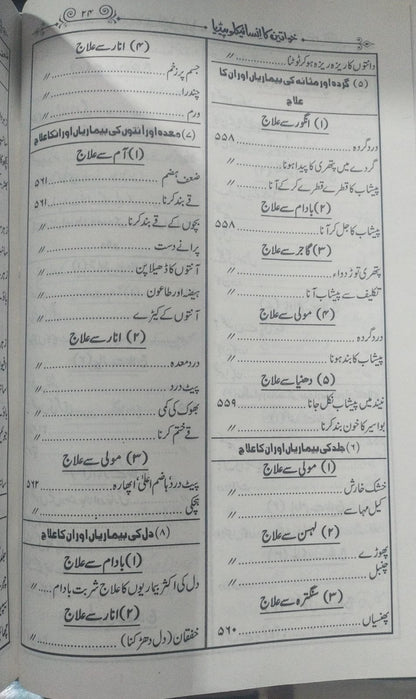 خواتین کا انسائیکلوپیڈیا
۲۴
دانتوں کا ریزہ ریزہ ہو کر ٹوٹنا ............ 〃
(۵) گردہ اور مثانہ کی بیماریاں اور ان کا
علاج
(۱) انگور سے علاج
درد گردہ ............ ۵۵۸
گردے میں پتھری کا پیدا ہونا ............ 〃
پیشاب کا قطرے قطرے کر کے آنا ............ 〃
(۲) بادام سے علاج
پیشاب کا جل کر آنا ............ ۵۵۸
(۳) گاجر سے علاج
پتھری توڑ دوا، ............ 〃
تکلیف سے پیشاب آنا ............ 〃
(۴) مولی سے علاج
درد گردہ ............ 〃
پیشاب کا بند ہونا ............ 〃
(۵) دھنیا سے علاج
نیند میں پیشاب نکل جانا ............ ۵۵۹
بواسیر کا خون بند کرنا ............ 〃
(۶) جلد کی بیماریاں اور ان کا علاج
(۱) مولی سے علاج
خشک خارش ............ 〃
کیل مہاسے ............ 〃
(۲) لہسن سے علاج
پھوڑے ............ 〃
چنبل ............ 〃
(۳) سنگترہ سے علاج
پھنسیاں ............ ۵۶۰
(۴) انار سے علاج
جسم پر زخم ............ 〃
چندرا ............ 〃
ورم ............ 〃
(۷) معدہ اور آنتوں کی بیماریاں اور انکا علاج
(۱) آم سے علاج
ضعف ہضم ............ ۵۶۱
قے بند کرنا ............ ۵۶۱
بچوں کے قے بند کرنا ............ 〃
پرانے دست ............ 〃
آنتوں کا ڈھیلا پن ............ 〃
ہیضہ اور طاعون ............ 〃
آنتوں کے کیڑے ............ 〃
(۲) انار سے علاج
درد معدہ ............ 〃
پیٹ درد ............ 〃
بھوک کی کمی ............ 〃
قے ختم کرنا ............ 〃
(۳) مولی سے علاج
پیٹ درد، ہاضم اعلیٰ اپھارہ ............ ۵۶۲
ہچکی ............ 〃
(۸) دل کی بیماریاں اور ان کا علاج
(۱) بادام سے علاج
دل کی اکثر بیماریوں کا علاج شربت بادام ..... 〃
(۲) انار سے علاج
خفقان (دل دھڑکنا) ............ 〃